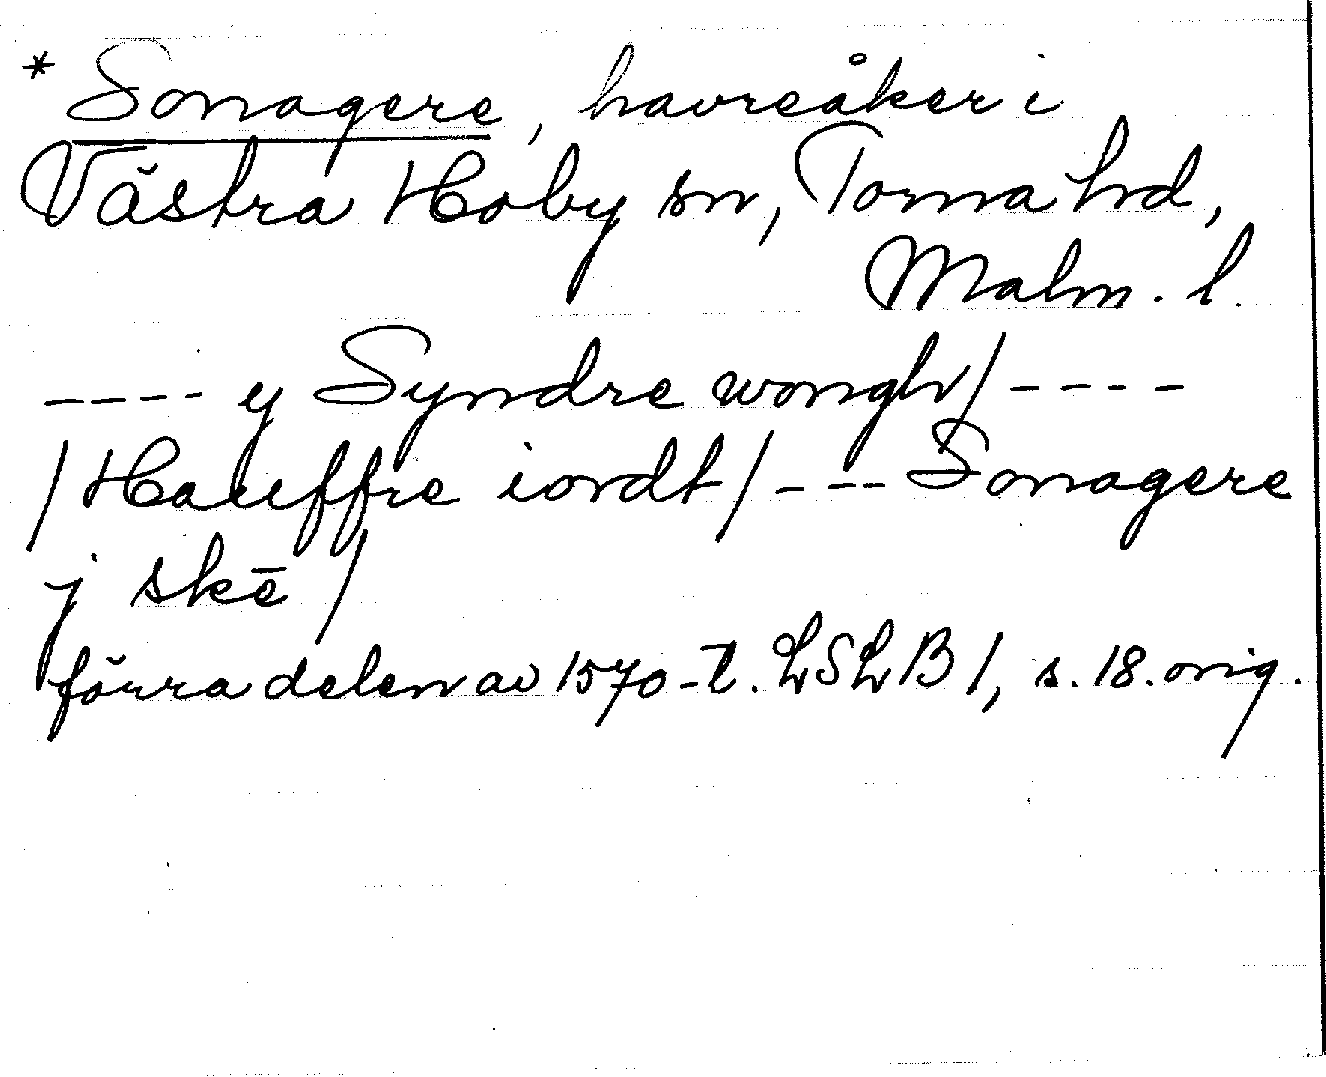 * Sonagere, havreåker i
Västra Hoby sn, Torna hd,
Malm. l.
---- y Syndre wongh/----
/Hauffre iordt/--- Sonagere
j skē/
förra delen av 1570-t. LSLB 1, s. 18. orig.